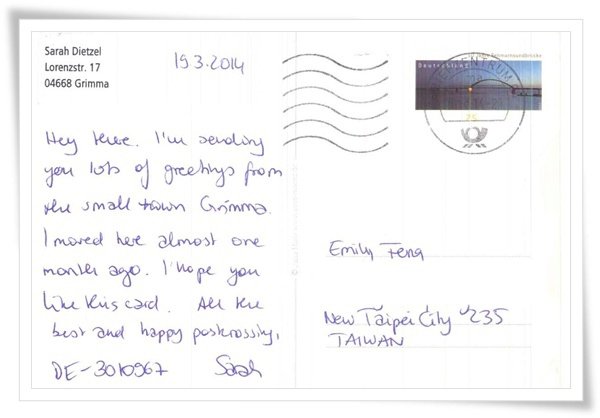 Sarah Dietzel
Lorenzstr. 17
04668 Grimma
19.3.2014
Deutschland
Fehmarnsundbrücke
ZENTRUM
75
Hey there. I'm sending
you lots of greetings from
the small town Grimma.
I moved here almost one
month ago. I hope you
like this card. All the
best and happy postcrossing,
DE-3010967 Sarah
Emily Feng
New Taipei City 235
TAIWAN